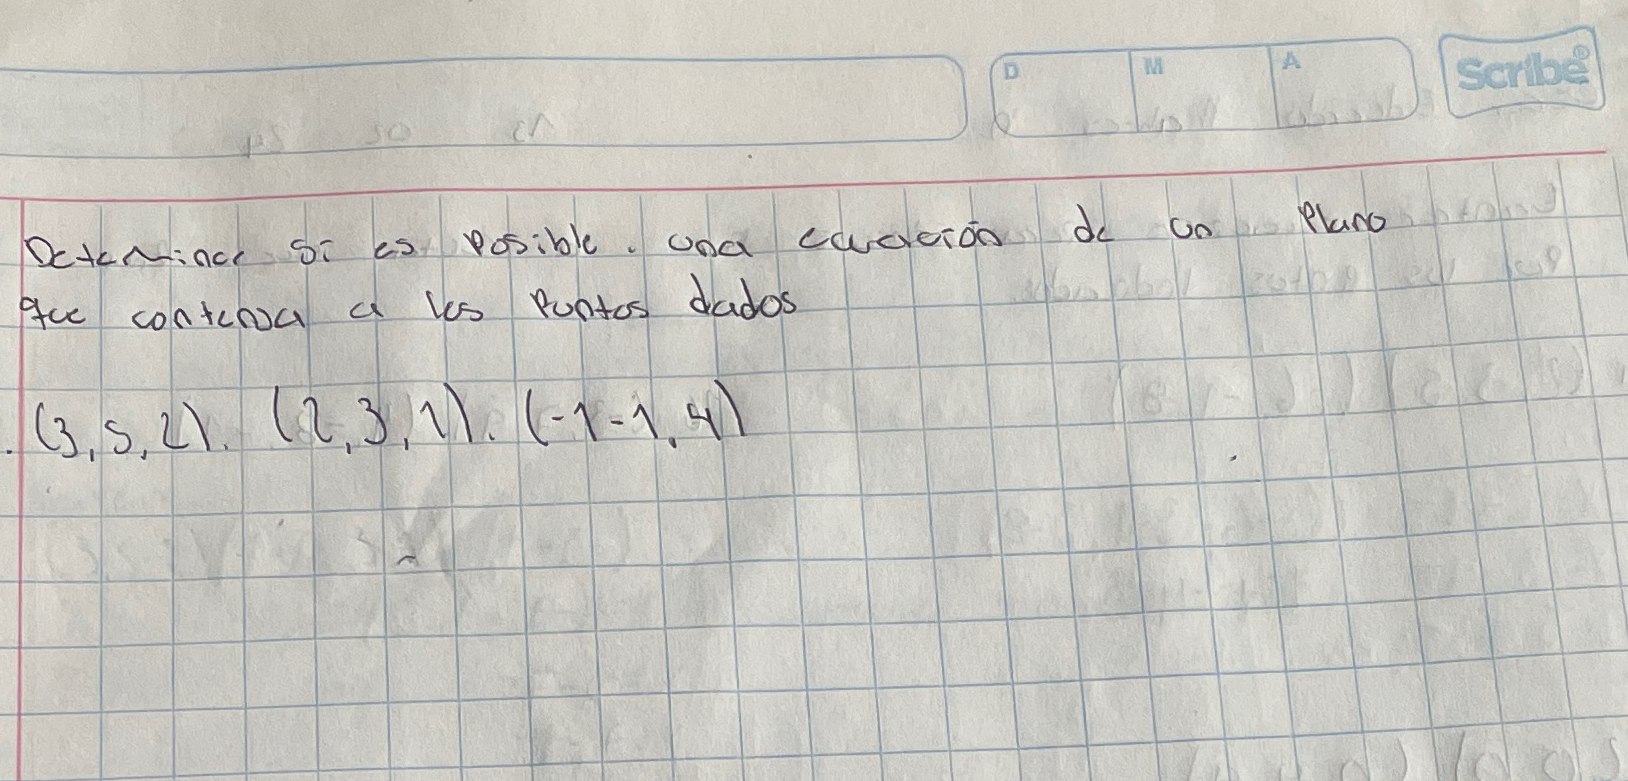 D M A Scribe®
Determinar si es posible. una ecuación de un Plano
que contenga a los Puntos dados
(3,5,2). (2,3,1). (-1-1,4)